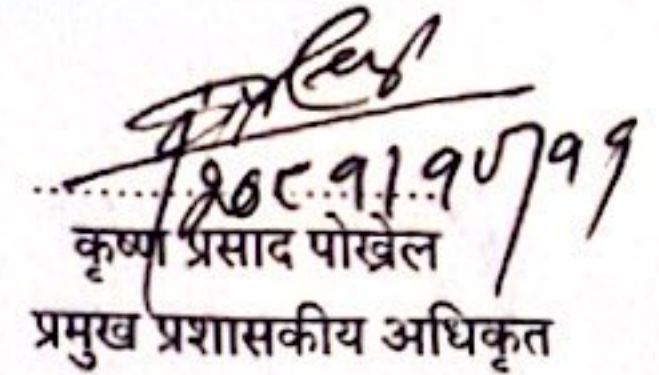 २०८१।१०।११
कृष्ण प्रसाद पोख्रेल
प्रमुख प्रशासकीय अधिकृत